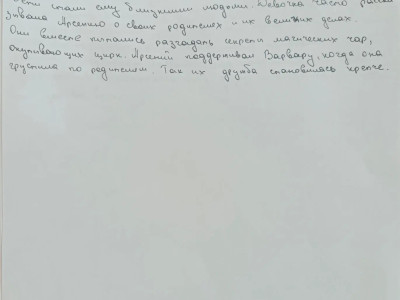 стали ему близкими людьми. Девочка часто расска
зывала Арсению о своих родителях и их великих делах.
Они вместе пытались разгадать секреты магических чар,
окутывающих цирк. Арсений поддерживал Варвару, когда она
грустила по родителям. Так их дружба становилась крепче.